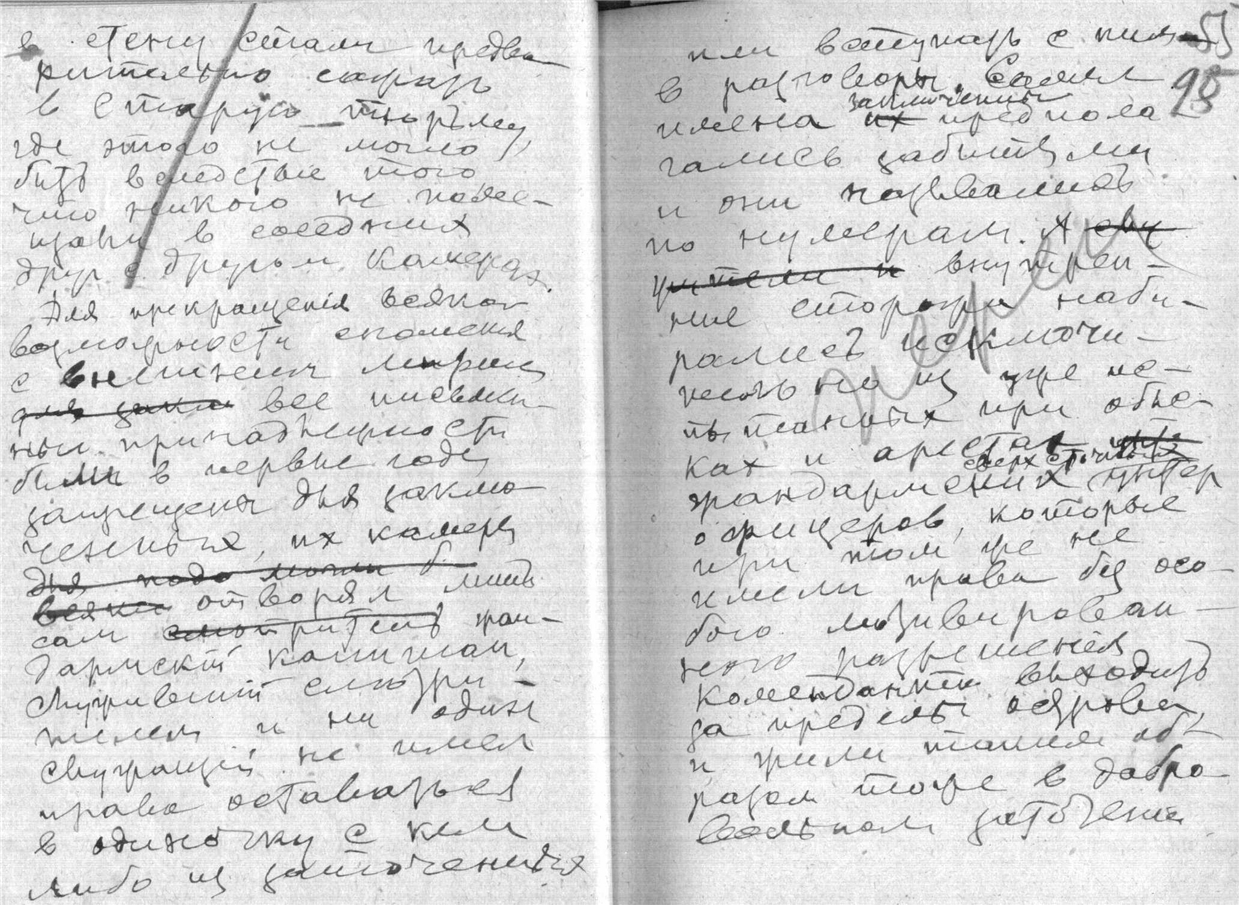 в стену стали предва
рительно сажать
в Старую тюрьму,
где этого не могло
быть вследствие того
что никого не поме-
щали в соседних
друг с другом камерах.
Для прекращенія всякой
возможности сношения
с внешним миром
для заклю все письмен-
ныя принадлежности
были в первые годы
запрещены для заклю
ченных, их камеры
отворял лишь
сам смотритель жан-
дармскій капитан,
служивший смотри-
телем и ни один
служащій не имел
права оставаться
в одиночку с кем
либо из заточенных
55
или вступать с ними
95
в разговоры. Самыя
заключенных
имена их предпола
гались забытыми
и они назывались
по нумерам. А слу
жители и внутрен-
ние сторожа наби-
рались исключи-
тельно из уже ис-
пытанных при обыс-
ках и арестах
сверхсрочных
жандармских унтер
офицеров, которые
при том же не
имели права без осо-
бого мотивирован-
ного разрешения
коменданта выходить
за пределы острова
и жили таким об-
разом тоже в добро
вольном заточении